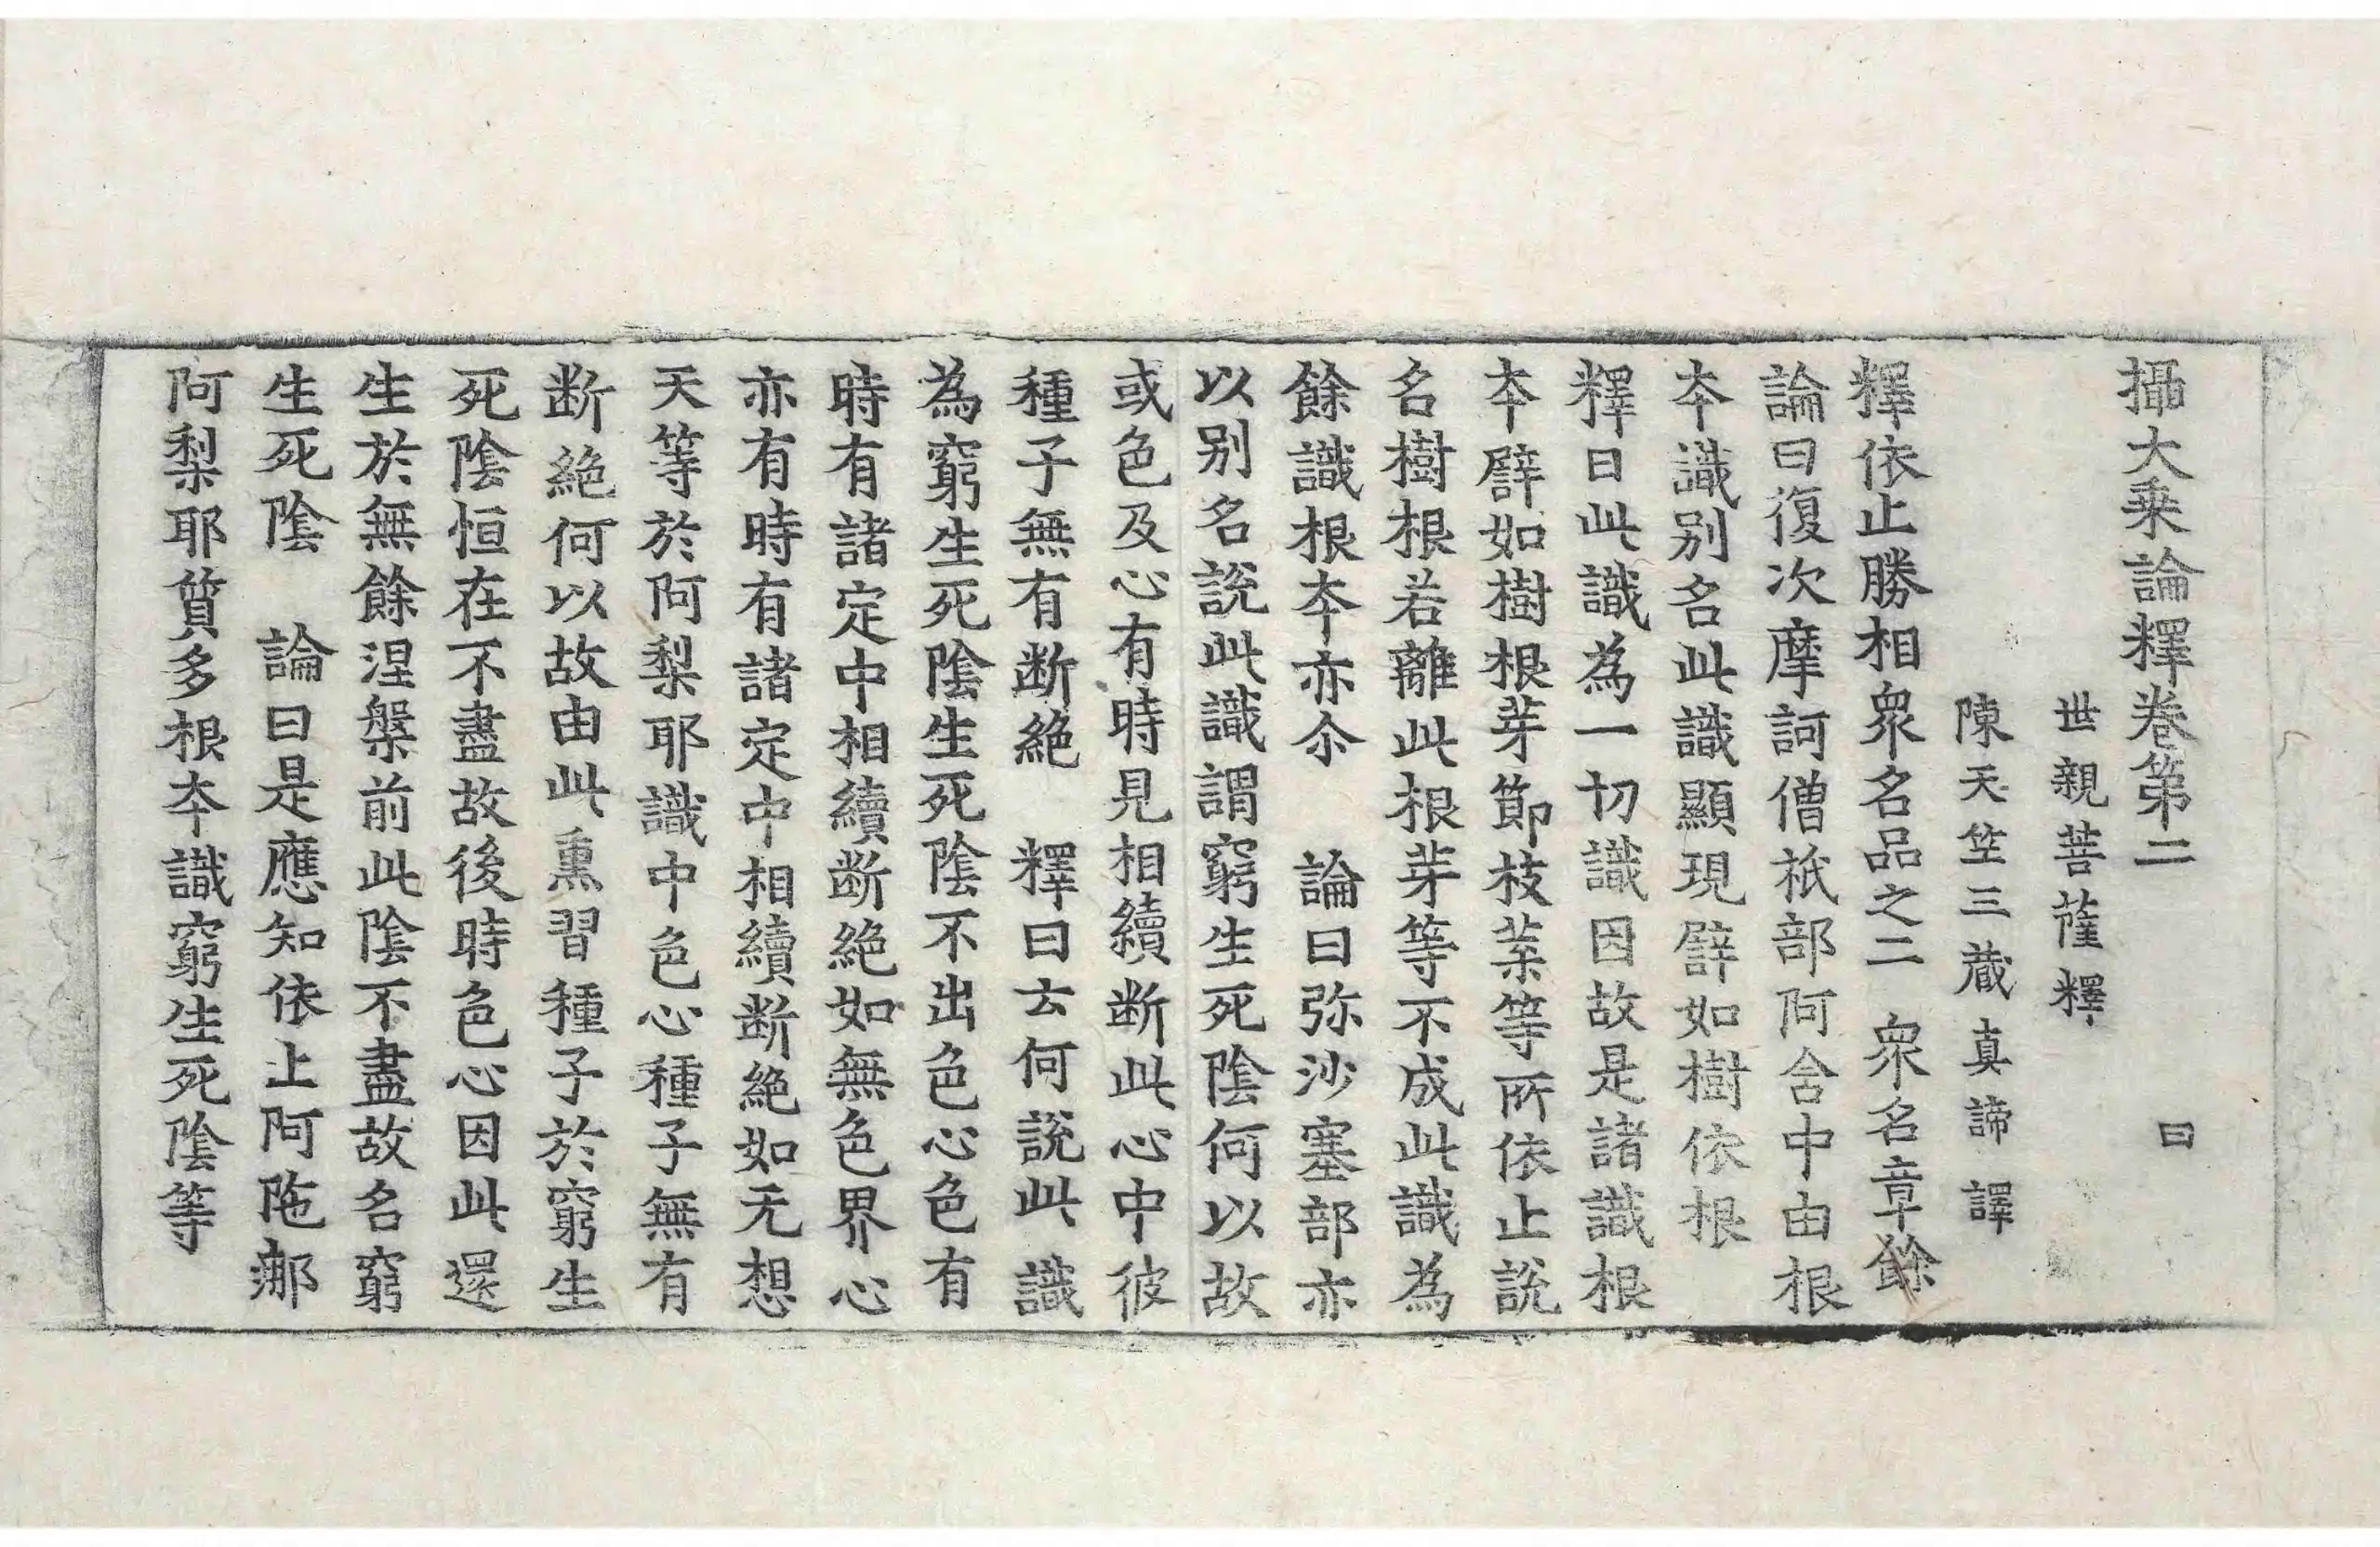 攝大乗論釋卷第二　曰
世親菩薩釋
陳天竺三藏真諦譯
釋依止勝相衆名品之二　衆名章餘
論曰復次摩訶僧祇部阿含中由根
夲識别名此識顯現譬如樹依根
釋曰此識為一切識因故是諸識根
夲譬如樹根芽節枝葉等所依止說
名樹根若離此根芽等不成此識為
餘識根夲亦尒　論曰弥沙塞部亦
以别名說此識謂窮生死陰何以故
或色及心有時見相續断此心中彼
種子無有断絶　釋曰云何說此識
為窮生死陰生死陰不出色心色有
時有諸定中相續断絶如無色界心
亦有時有諸定中相續断絶如无想
天等於阿梨耶識中色心種子無有
断絶何以故由此熏習種子於窮生
死陰恒在不盡故後時色心因此還
生於無餘涅槃前此陰不盡故名窮
生死陰　論曰是應知依止阿陁那
阿梨耶質多根夲識窮生死陰等